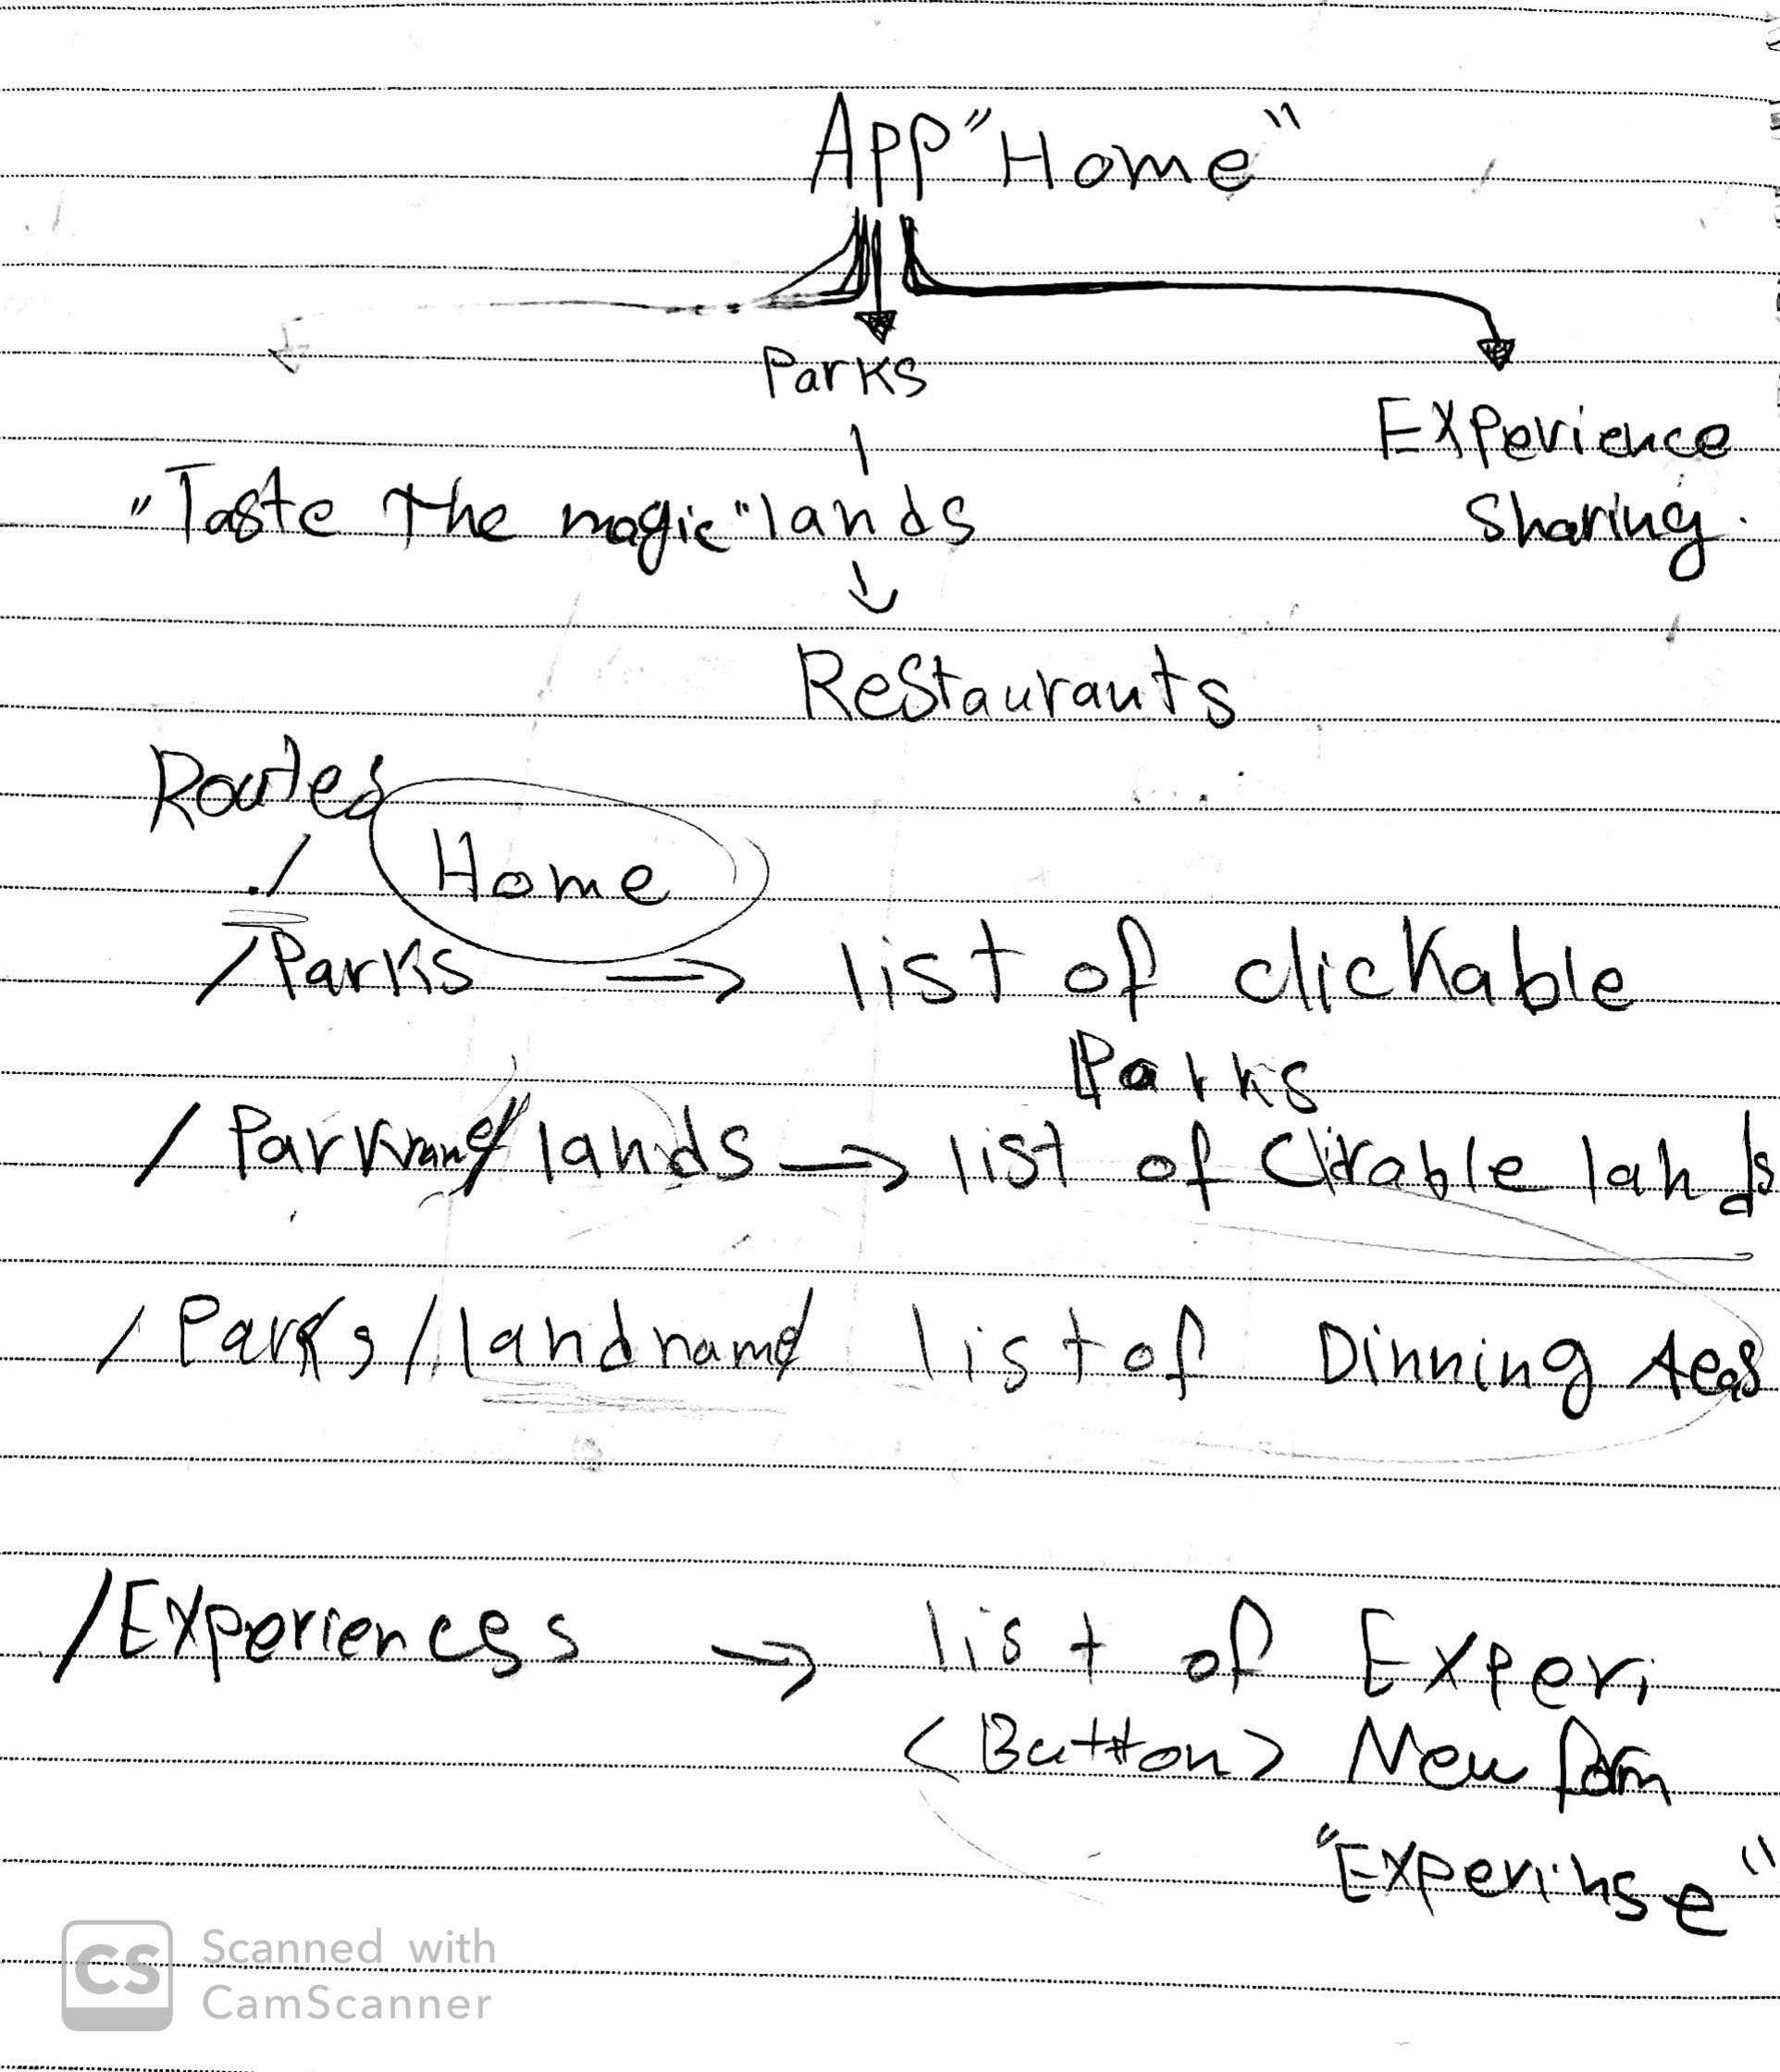 App "Home"
Parks
Experience
Sharing.
"Taste The magic" lands
Restaurants
Routes
/ Home
/Parks → list of clickable
Parks
/ lands → list of lands
/ Parks / landname list of Dinning
/Experiences → list of Experi
<Button> New form
"Experinse"
CS Scanned with
CamScanner